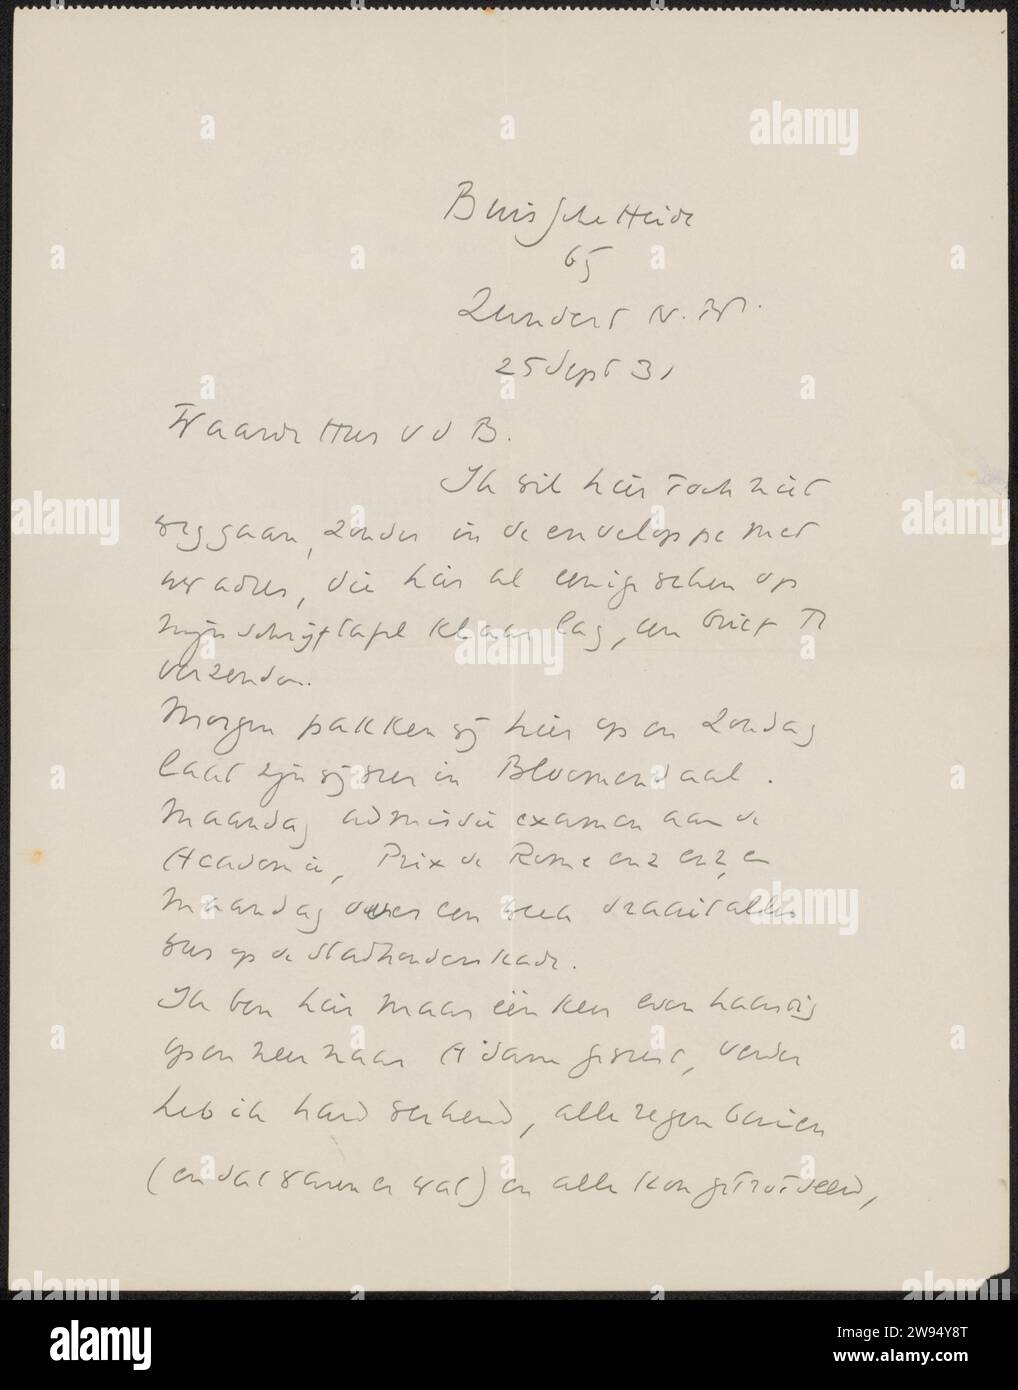 Buissche Heide
65
Zundert N. Br.
25 Sept 31
Waarde Heer v d B.
Ik wil hier toch niet
weggaan, zonder in de enveloppe met
uw adres, die hier al eenige weken op
mijn schrijftafel klaar lag, een brief te
verzenden.
Morgen pakken wij hier op en Zondag
laat zijn wij weer in Bloemendaal.
Maandag admissie examen aan de
Academie, Prix de Rome enz enz, en
Maandag over een week draait alles
weer op de Stadhouderskade.
Ik ben hier maar één keer even haastig
op en neer naar A'dam geweest, verder
heb ik hard gewerkt, alle regen buien
(en dat waren er wat) en alle kou getrotseerd,
alamy
a
Image ID: 2W94Y8T
www.alamy.com